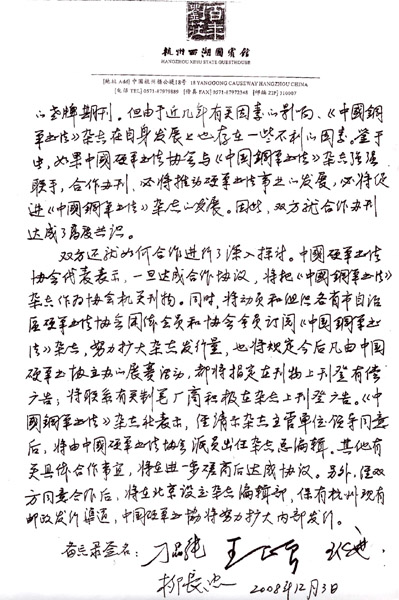 百年
劉莊
杭州西湖國賓館
HANGZHOU XIHU STATE GUESTHOUSE
[地址 Add] 中国杭州杨公堤18号 18 YANGGONG CAUSEWAY HANGZHOU CHINA
[电话 TEL] 0571-87979889 [传真 FAX] 0571-87972348 [邮编 ZIP] 310007
的老牌期刊。但由于近几年有关因素的影响、《中國鋼
筆书法》杂志在自身发展上也存在一些不利的因素。鉴于
此,如果中國硬筆书法协会与《中國鋼筆书法》杂志强强
联手,合作办刊,必将推动硬筆书法事业的发展,必将促
进《中國鋼筆书法》杂志的发展。因此,双方就合作办刊
达成了高度共识。
双方还就如何合作进行了深入探讨。中國硬筆书法
协会代表表示,一旦达成合作协议,将把《中國鋼筆书法》
杂志作为协会机关刊物。同时,将动员和组织各省市自治
区硬筆书法协会团体会员和协会会员订阅《中國鋼筆书
法》杂志,努力扩大杂志发行量,也将规定今后凡由中国
硬筆书协主办的展赛活动,都将指定在刊物上刊登有偿
广告;将联系有关制笔厂商积极在杂志上刊登广告。《中
國鋼筆书法》杂志社表示,在请示杂志主管单位领导同意
后,将由中國硬筆书法协会派员出任杂志总编辑。其他有
关具体合作事宜,将在进一步磋商后达成协议。另外,在双
方同意合作后,将在北京设立杂志编辑部,保有杭州现有
邮政发行渠道,中国硬筆书協将努力扩大内部发行。
备忘录签名:
柳長忠 2008年12月3日